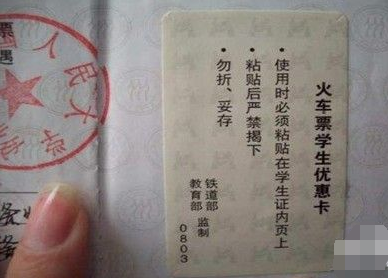 火车票学生优惠卡
• 使用时必须粘贴在学生证内页上
• 粘贴后严禁揭下
• 勿折、妥存
铁道部
教育部 监制
0803
票
遇
人民大学